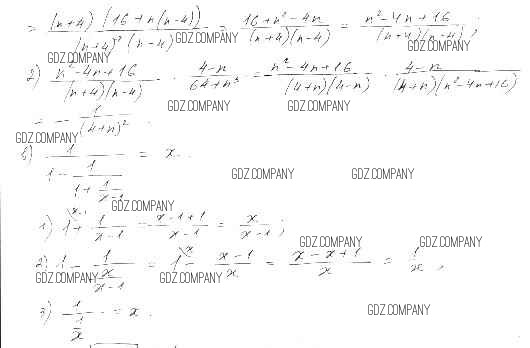 = (n+4)(16+n(n-4)) / (n+4)²(n-4) = 16+n²-4n / (n+4)(n-4) = n²-4n+16 / (n+4)(n-4) ;
GDZ.COMPANY GDZ.COMPANY GDZ.COMPANY
2) n²-4n+16 / (n+4)(n-4) · 4-n / 64+n³ = n²-4n+16 / (4+n)(4-n) · 4-n / (4+n)(n²-4n+16)
GDZ.COMPANY GDZ.COMPANY
= - 1 / (4+n)² .
GDZ.COMPANY
в) 1 / (1 - 1 / (1 + 1 / x-1)) = x .
GDZ.COMPANY GDZ.COMPANY GDZ.COMPANY
1) 1 + 1 / x-1 = x-1+1 / x-1 = x / x-1 ;
GDZ.COMPANY GDZ.COMPANY
2) 1 - 1 / (x / x-1) = 1 - x-1 / x = x-x+1 / x = 1 / x ,
GDZ.COMPANY GDZ.COMPANY
3) 1 / (1 / x) = x .
GDZ.COMPANY